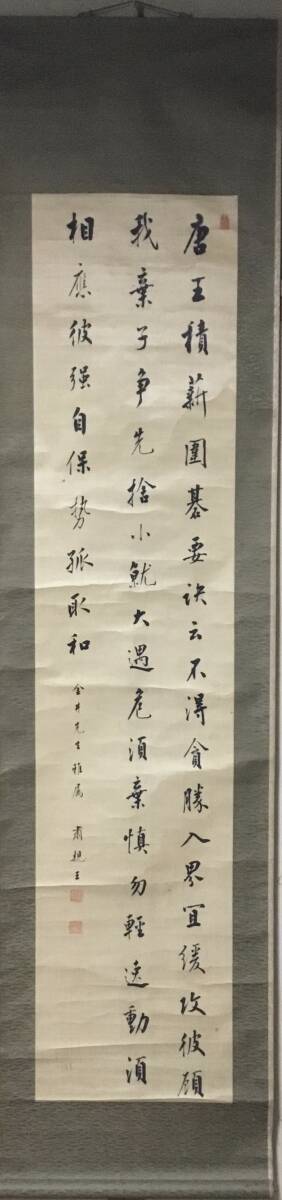 唐王積薪圍碁要訣云不得貪勝入界宜緩攻彼顧
我棄子争先捨小就大遇危須棄慎勿輕速動須
相應彼强自保勢孤取和
金井先生雅属 肅親王